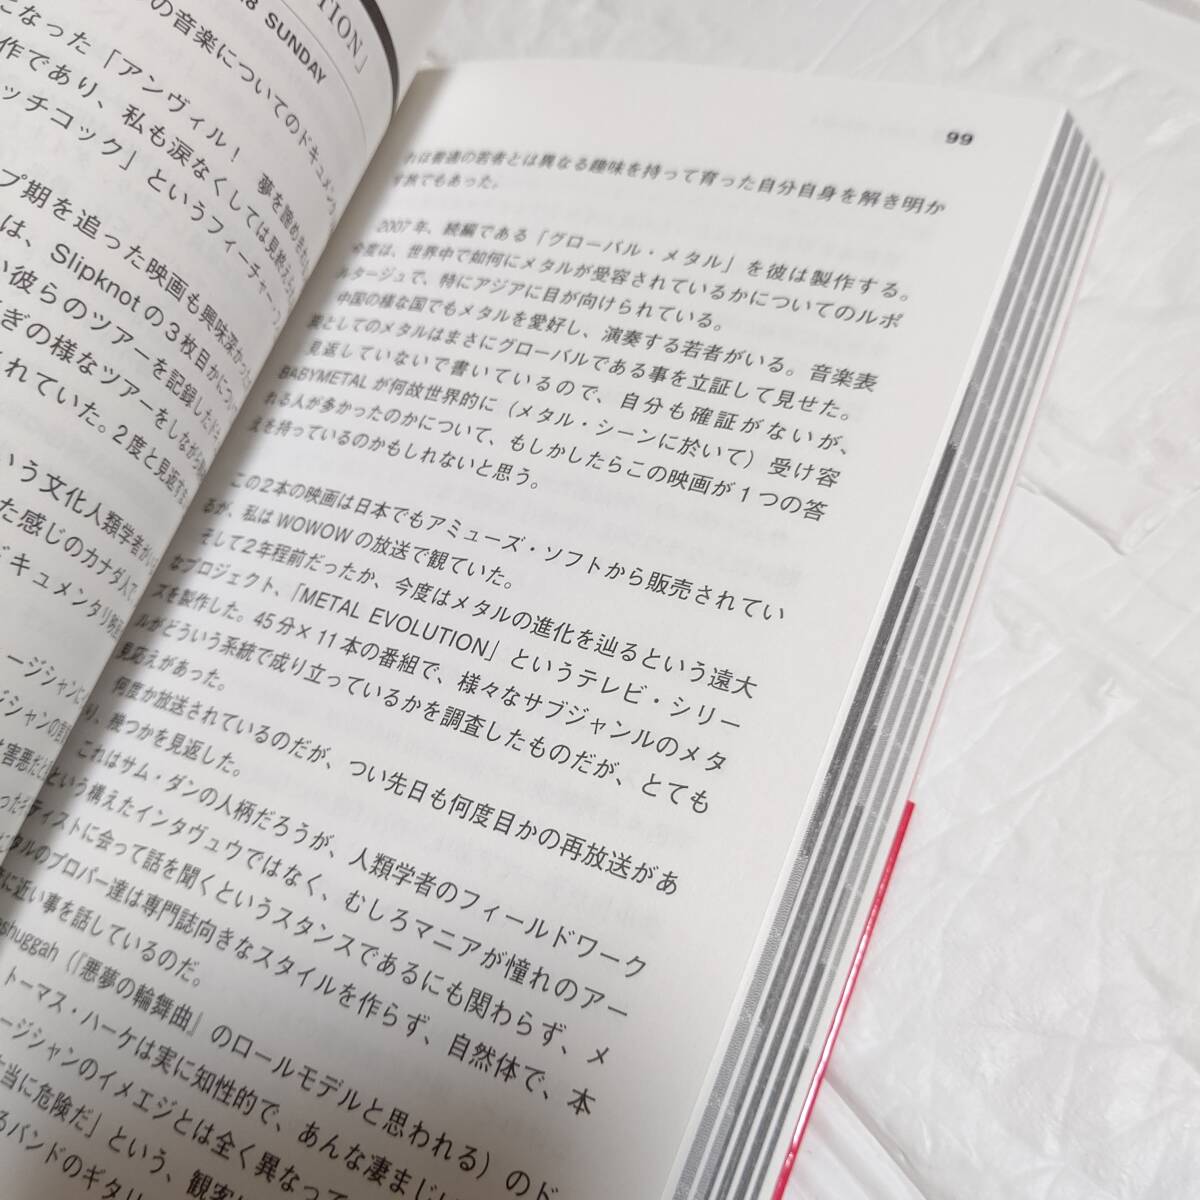 TION」
8 SUNDAY
の音楽についてのドキュメン
になった「アンヴィル！　夢を諦め
作であり、私も涙なくしては見終え
ッチコック」というフィーチャー・
プ期を追った映画も興味深か
は、Slipknotの3枚目かについ
い彼らのツアーを記録したド
ぎの様なツアーをしながら
くれていた。2度と見返す
いう文化人類学者が
た感じのカナダ人で、
ドキュメンタリ
ージシャンに
ジシャンの
99
れは普通の若者とは異なる趣味を持って育った自分自身を解き明か
す旅でもあった。
2007年、続編である「グローバル・メタル」を彼は製作する。
今度は、世界中で如何にメタルが受容されているかについてのルポ
ルタージュで、特にアジアに目が向けられている。
中国の様な国でもメタルを愛好し、演奏する若者がいる。音楽表
現としてのメタルはまさにグローバルである事を立証して見せた。
見返していないで書いているので、自分も確証がないが、
BABYMETALが何故世界的に（メタル・シーンに於いて）受け容
れる人が多かったのかについて、もしかしたらこの映画が1つの答
えを持っているのかもしれないと思う。
この2本の映画は日本でもアミューズ・ソフトから販売されてい
るが、私はWOWOWの放送で観ていた。
そして2年程前だったか、今度はメタルの進化を辿るという遠大
なプロジェクト、「METAL EVOLUTION」というテレビ・シリー
ズを製作した。45分×11本の番組で、様々なサブジャンルのメタ
ルがどういう系統で成り立っているかを調査したものだが、とても
見応えがあった。
何度か放送されているのだが、つい先日も何度目かの再放送があ
り、幾つかを見返した。
これはサム・ダンの人柄だろうが、人類学者のフィールドワーク
という構えたインタヴュウではなく、むしろマニアが憧れのアー
ティストに会って話を聞くというスタンスであるにも関わらず、メ
タルのプロパー達は専門誌向きなスタイルを作らず、自然体で、本
に近い事を話しているのだ。
shuggah（『悪夢の輪舞曲』のロールモデルと思われる）のド
トーマス・ハーケは実に知性的で、あんな凄まじい
ージシャンのイメエジとは全く異なっ
当に危険だ」という、観客に
るバンドのギタリ